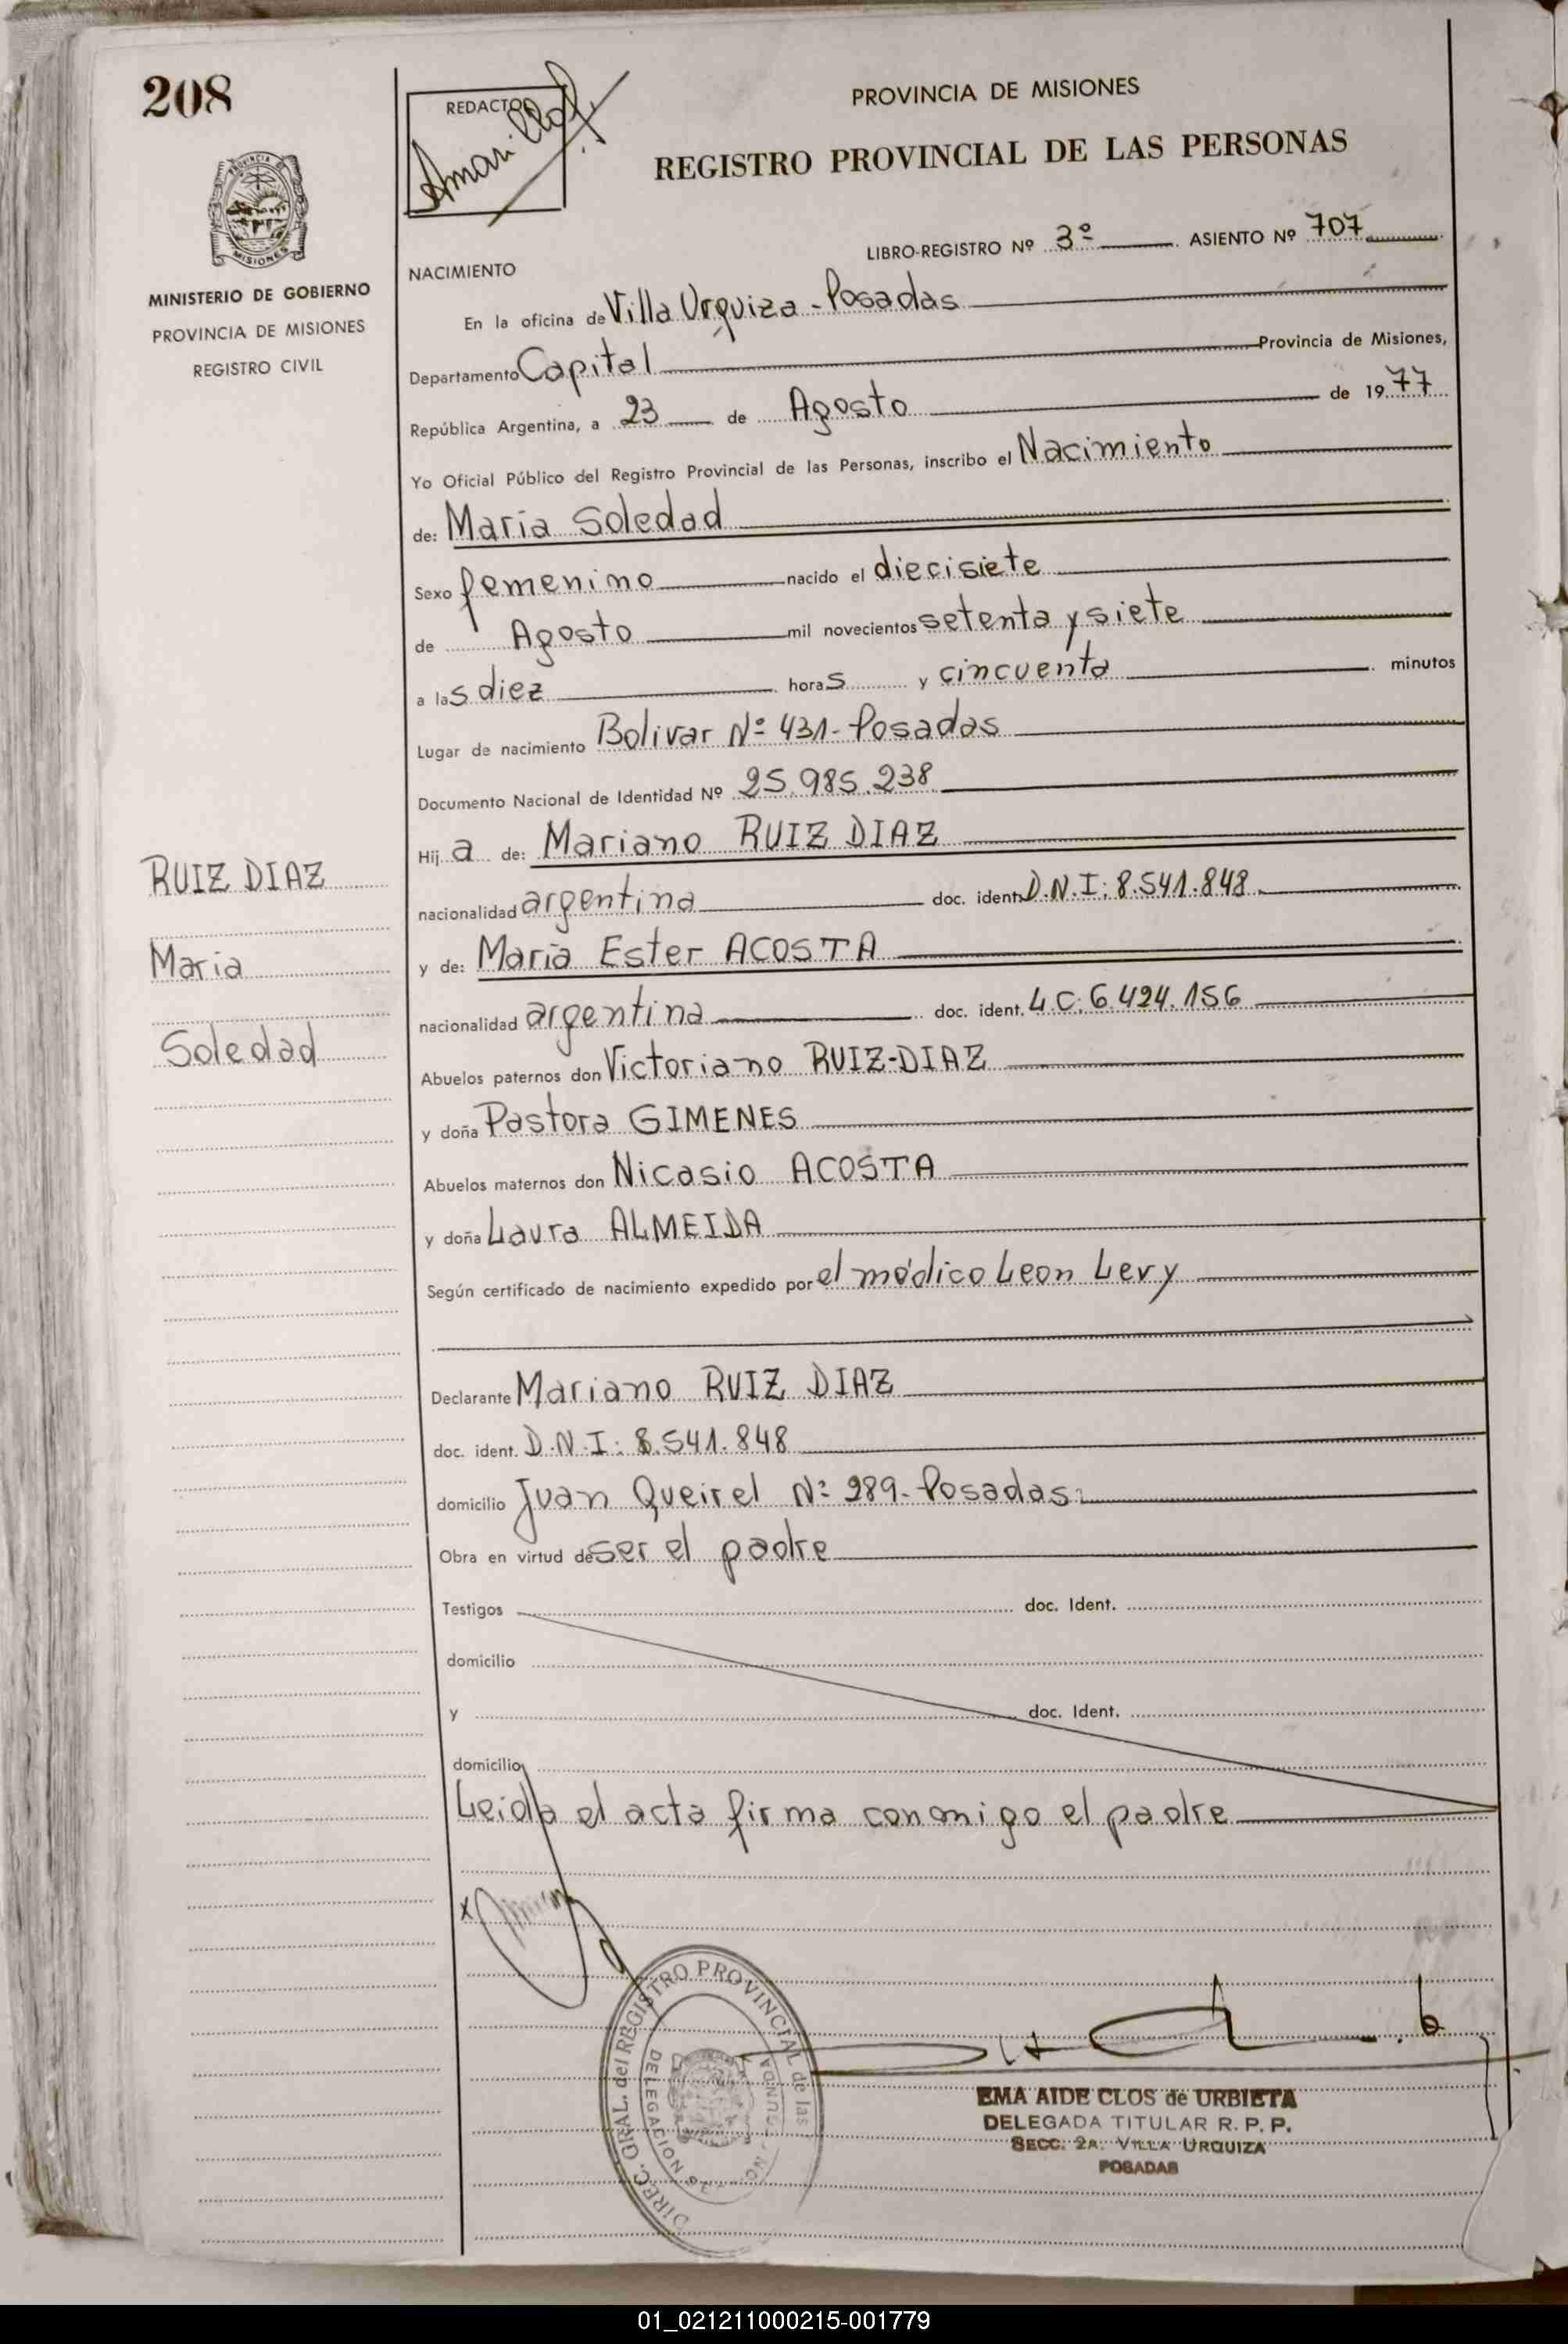 208
REDACTOR
PROVINCIA DE MISIONES
REGISTRO PROVINCIAL DE LAS PERSONAS
PROVINCIA DE
MISIONES
MINISTERIO DE GOBIERNO
PROVINCIA DE MISIONES
REGISTRO CIVIL
LIBRO-REGISTRO Nº 3º ASIENTO Nº 707
NACIMIENTO
En la oficina de Villa Urquiza - Posadas
Departamento Capital Provincia de Misiones,
República Argentina, a 23 de Agosto de 1977
Yo Oficial Público del Registro Provincial de las Personas, inscribo el Nacimiento
de: María Soledad
Sexo femenino nacido el diecisiete
de Agosto mil novecientos setenta y siete
a las diez horas y cincuenta minutos
Lugar de nacimiento Bolivar Nº 431- Posadas
Documento Nacional de Identidad Nº 25.985.238
Hija de: Mariano RUIZ DIAZ
RUIZ DIAZ
nacionalidad argentina doc. ident. D.N.I: 8.541.848
Maria
y de: María Ester ACOSTA
nacionalidad argentina doc. ident. L.C: 6.424.156
Soledad
Abuelos paternos don Victoriano RUIZ-DIAZ
y doña Pastora GIMENES
Abuelos maternos don Nicasio ACOSTA
y doña Laura ALMEIDA
Según certificado de nacimiento expedido por el médico Leon Levy
Declarante Mariano RUIZ DIAZ
doc. ident. D.N.I: 8.541.848
domicilio Juan Queirel Nº 289- Posadas
Obra en virtud de ser el padre
Testigos doc. Ident.
domicilio
y doc. Ident.
domicilio
Leida el acta firma conmigo el padre
DIREC. GRAL. del REGISTRO PROVINCIAL de las
DELEGACION
EMA AIDE CLOS de URBIETA
DELEGADA TITULAR R. P. P.
SECC. 2A. VILLA URQUIZA
POSADAS
01_021211000215-001779